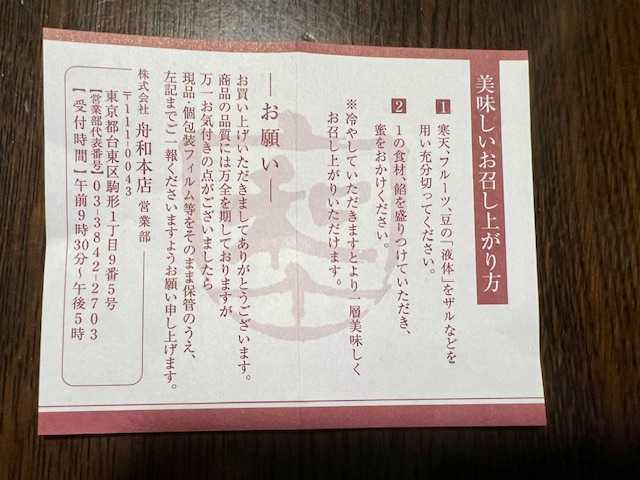 美味しいお召し上がり方
1 寒天、フルーツ、豆の「液体」をザルなどを
用い充分切ってください。
2 1の食材、餡を盛りつけていただき、
蜜をおかけください。
※冷やしていただきますとより一層美味しく
お召し上がりいただけます。
―お願い―
お買い上げいただきましてありがとうございます。
商品の品質には万全を期しておりますが
万一お気付きの点がございましたら
現品・個包装フィルム等をそのまま保管のうえ、
左記までご一報くださいますようお願い申し上げます。
株式会社 舟和本店 営業部
〒111-0043
東京都台東区駒形1丁目9番5号
【営業部代表番号】03-3842-2703
【受付時間】午前9時30分～午後5時